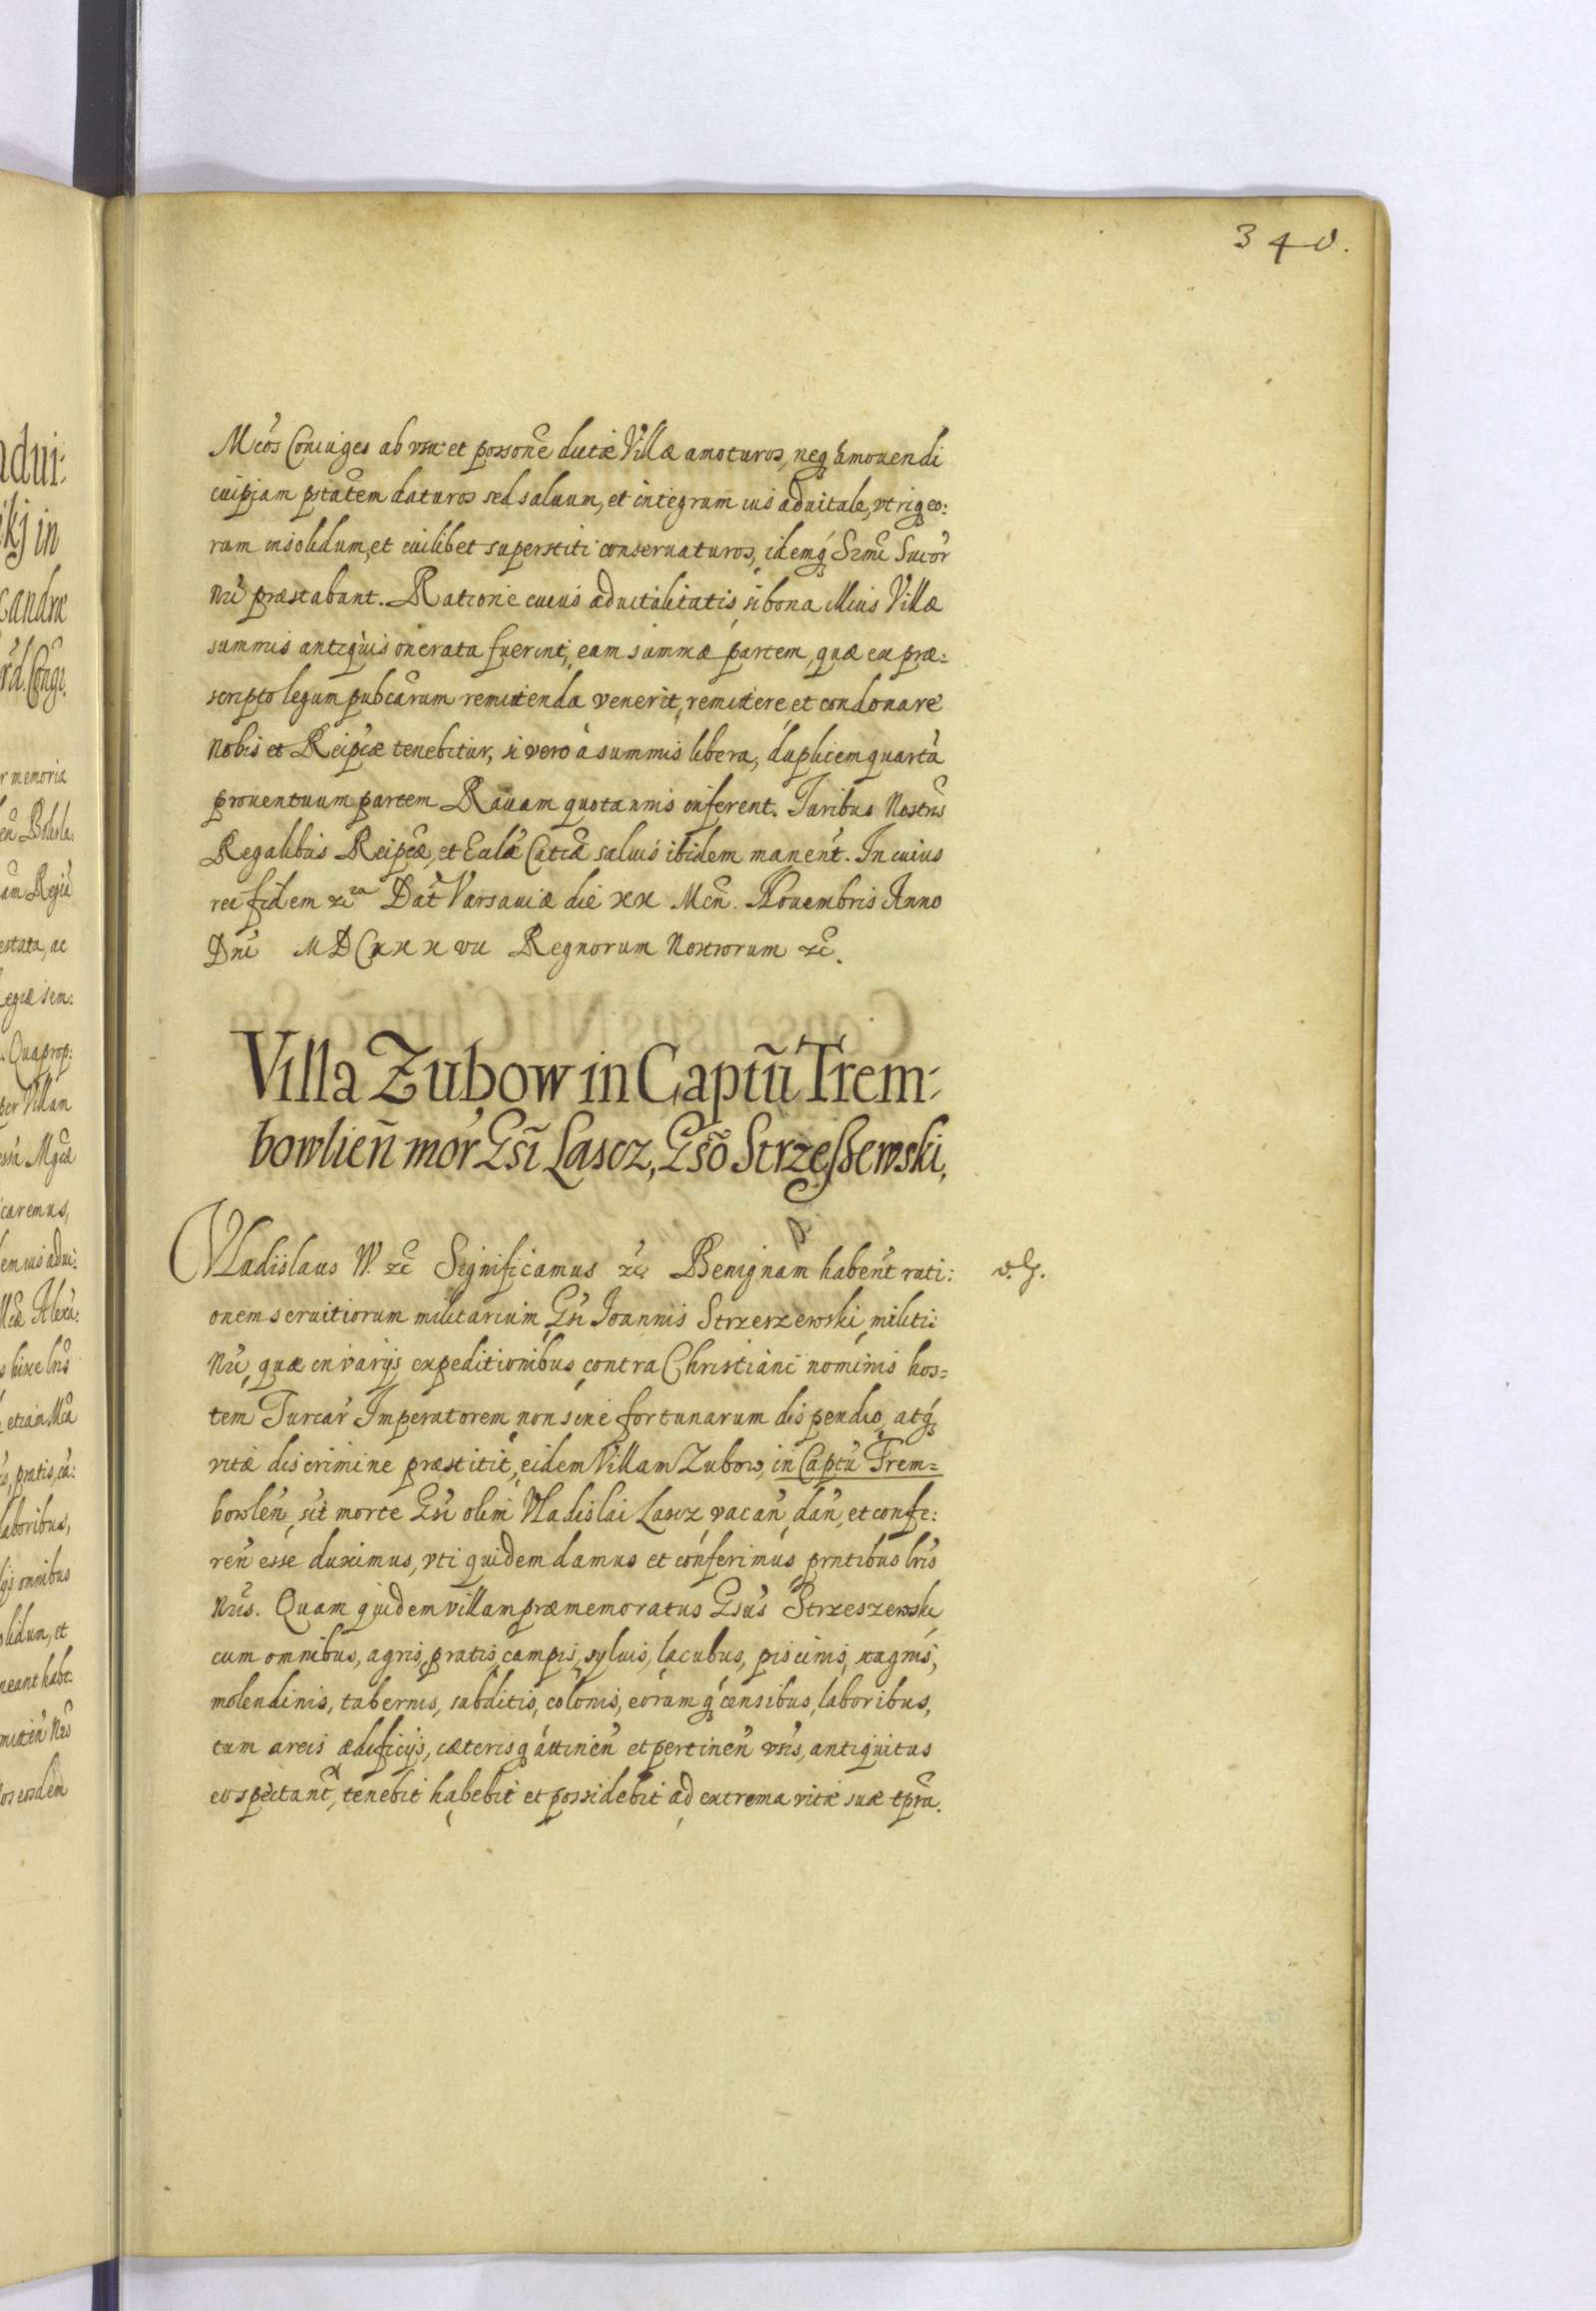 340.
Mcos Coniuges ab usu et possone dictæ Villæ amoturos, neq amouendi
cuipiam ptatem daturos sed saluum, et integrum ius aduitale, utriq eo:
rum insolidum, et cuilibet superstiti conseruaturos, idemq Szmi Succor
Nri præstabunt. Ratione cuius aduitalitatis si bona illius Villæ
summis antiquis onerata fuerint, eam summæ partem, quæ ex præ:
scripto legum pubcarum remittenda venerit, remittere et condonare
Nobis et Reipcæ tenebitur, si vero à summis libera, duplicem quartā
prouentuum partem Ravam quotannis inferent. Iuribus Nostris
Regalibus Reipcæ, et Ecclæ Catcæ saluis ibidem manent. In cuius
rei fidem etc Dat Varsauiæ die xx Mcn. Nouembris Anno
Dni MDCxxxvii Regnorum Nostrorum etc.
Villa Zubow in Captũ Trem:
bowlien mor Gsi Lascz, Gso Strzeszewski,
Vladislaus IV. etc Significamus etc Benignam habent rati:
v. G.
onem seruitiorum militarium Gsi Joannis Strzeszewski militis
Nri, quæ in varijs expeditionibus contra Christiani nominis hos=
tem Turcar Imperatorem non sine fortunarum dispendio, atq
vitæ discrimine præstitit, eidem Villam Zubow, in Captu Trem=
bowlen, sit morte Gsi olim Vladislai Lascz, vacan, dan, et confe:
ren esse duximus, uti quidem damus et conferimus prntibus lris
Nris. Quam quidem villam præmemoratus Gsus Strzeszewski
cum omnibus, agris, pratis, campis, syluis, lacubus, piscinis, stagnis,
molendinis, tabernis, subditis, colonis, eorumq censibus, laboribus,
tum areis ædificijs, cæterisq attinen et pertinen vsis, antiquitus
eo spectant, tenebit habebit et possidebit ad extrema vitæ suæ tpra.